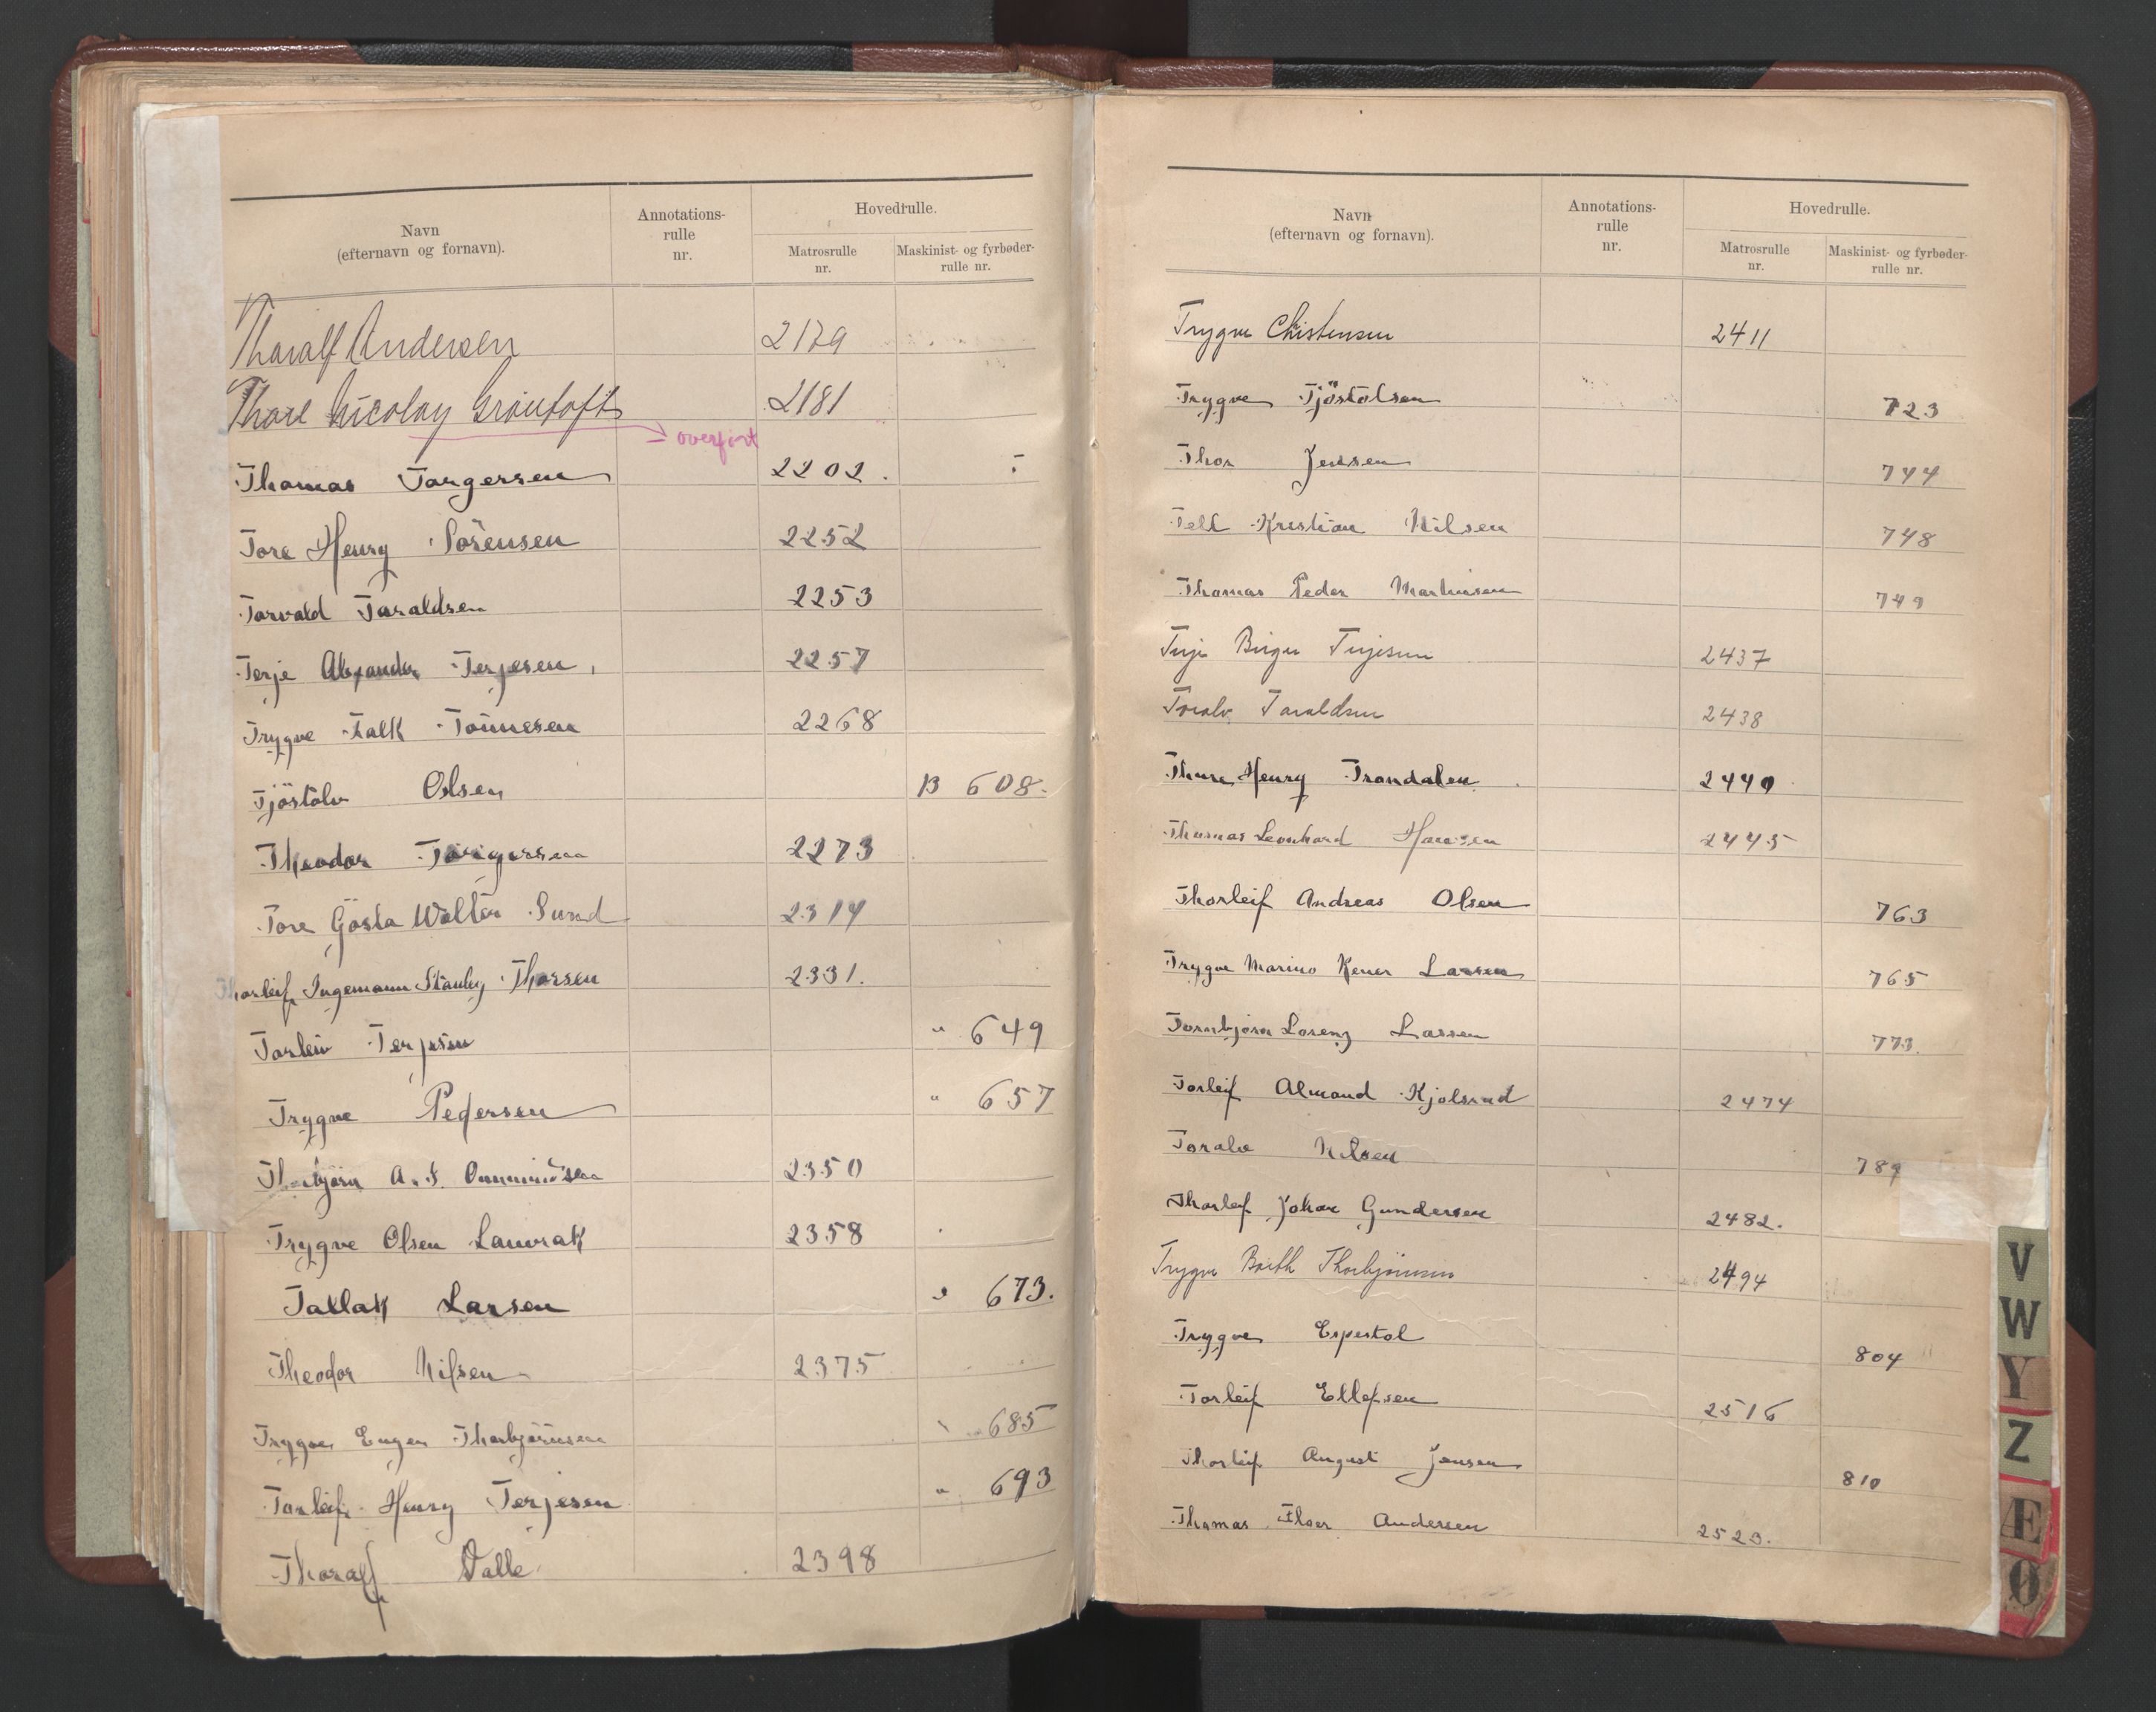 Navn
(efternavn og fornavn).
Annotations-
rulle
nr.
Hovedrulle.
Matrosrulle
nr.
Maskinist- og fyrbøder-
rulle nr.
Tharalf Andersen 2179
Thore Nicolay Gröntoft 2181
overført
Thomas Torgersen 2202.
Tore Henry Sörensen 2252
Torvald Taraldsen 2253
Terje Alexander Terjesen 2257
Trygve Falk Tönnesen 2268
Tjöstolv Olsen B 608.
Theodor 2273
Tore Gösta Walter Sund 2314
Thorleif Ingemann Stanley Thorsen 2331.
Torleiv Terjesen " 649
Trygve Pedersen " 657
Thorbjørn A. F. 2350
Trygve Olsen Lauvrak 2358
Tallak Larsen " 673.
Theodor Nilsen 2375
Trygve Eugen Thorbjörnsen " 685
Torleif Henry Terjesen " 693
Thoralf Valle 2398
Navn
(efternavn og fornavn).
Annotations-
rulle
nr.
Hovedrulle.
Matrosrulle
nr.
Maskinist- og fyrbøder-
rulle nr.
Trygve Christensen 2411
Trygve Tjöstolsen 723
Thor Jensen 744
Tell Kristian Nilsen 748
Thomas Peder Martinsen 749
Terje Birger Terjesen 2437
Toralv Taraldsen 2438
Thure Henry Trondalen 2440
Thomas Leonhard Hansen 2445
Thorleif Andreas Olsen 763
Trygve Marino Larsen 765
Tornbjørn Lorenz Larsen 773.
Torleif Almond Kjolsrud 2474
Toralv Nilsen 789
Thorleif Johan Gundersen 2482.
Trygve Barth Thorbjörnsen 2494
Trygve Espestøl 804
Torleif Ellefsen 2516
Thorleif August Jensen 810
Thomas Andersen 2523.
V
W
Y
Z
Æ
Ø